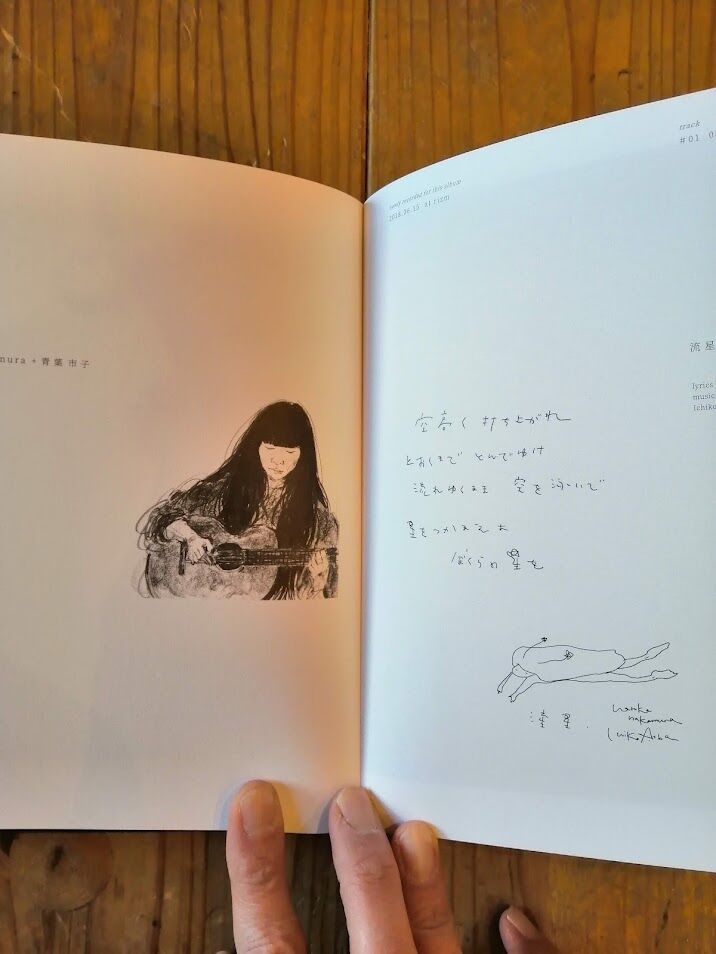 nura + 青葉 市子
newly recorded for this album
2018.06.13 at rizm
track
#01 0
流星
lyrics
music
Ichiko
空高く 打ち上がれ
とおくまで とんでゆけ
流れゆくまま 空を泳いで
星をつかまえた
ぼくらの星を
流星.
haruka
nakamura
Ichiko Aoba